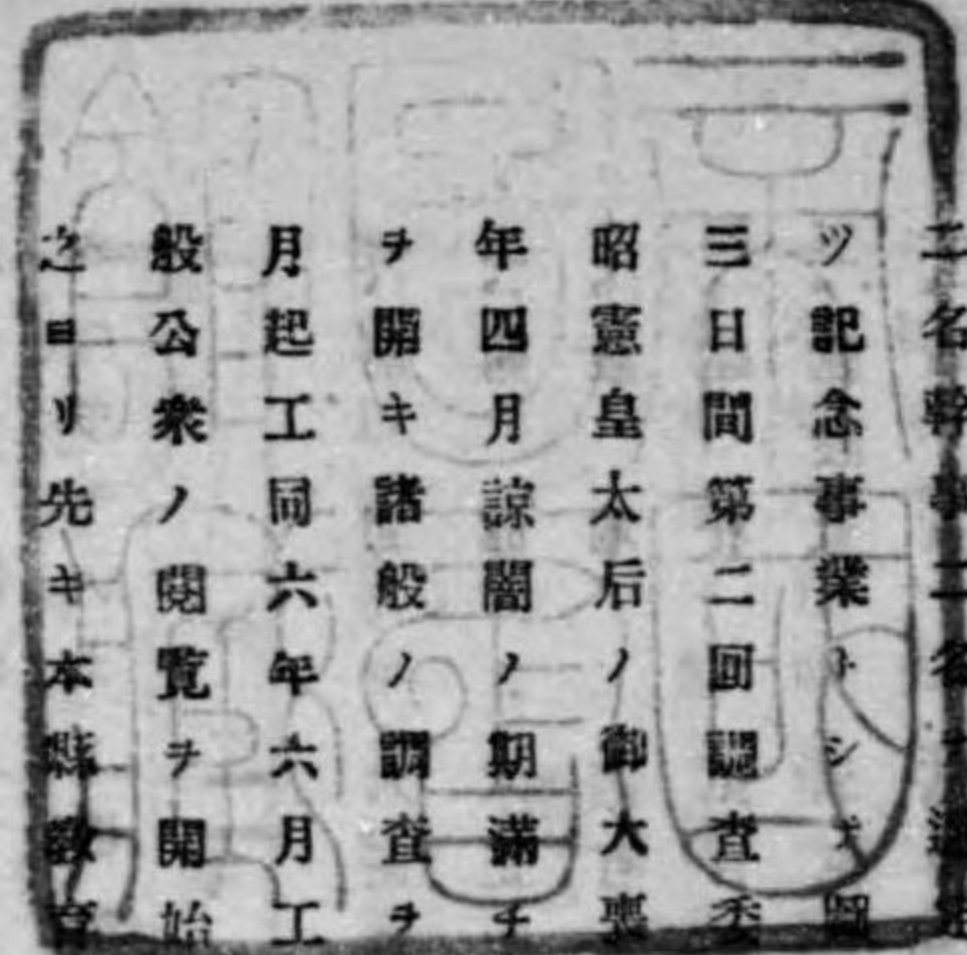 二名幹事二名ヲ選定
ツ記念事業トシ圖
三日間第二回調査委
昭憲皇太后ノ御大喪
年四月諒闇ノ期滿チ
ヲ開キ諸般ノ調査ヲ
月起工同六年六月工
般公衆ノ閲覧ヲ開始
之ヨリ先キ本縣教育